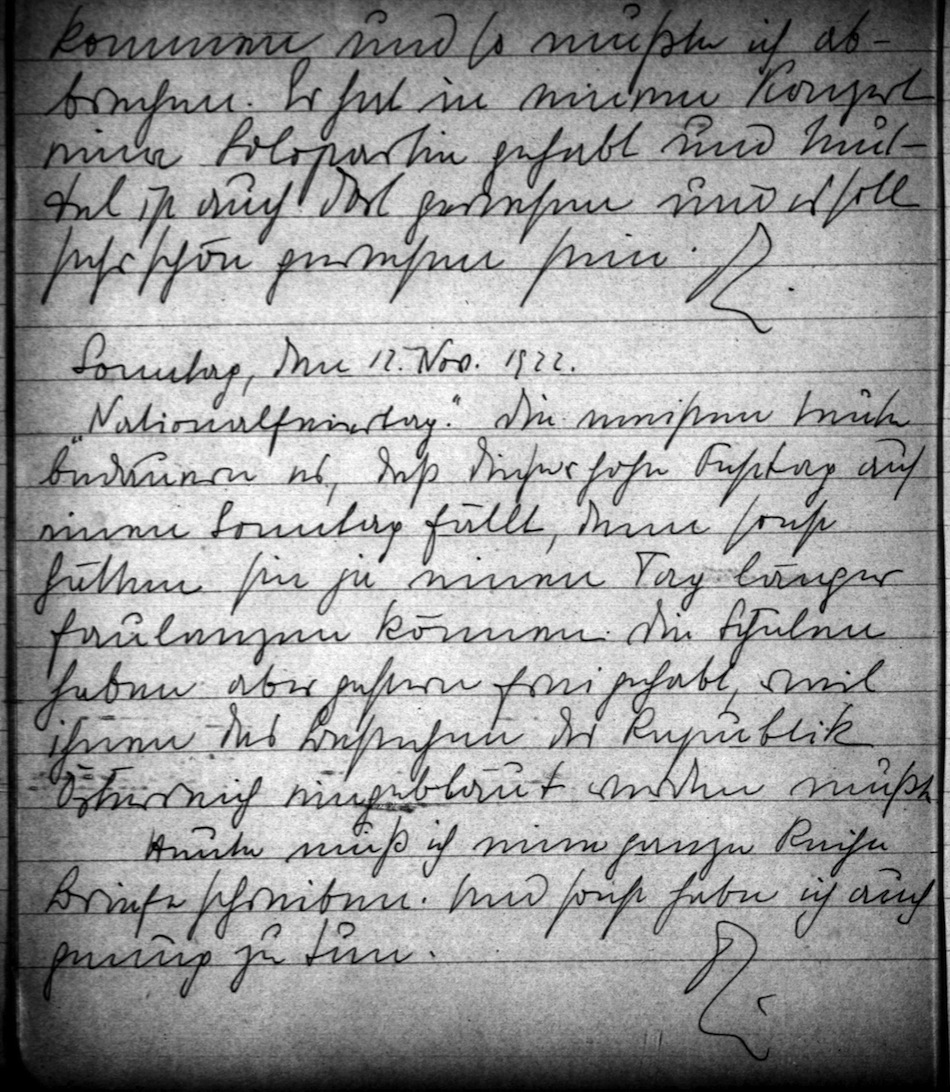 kommen und so mußte ich ab-
brechen. Er hat in einem Konzert
eine Solopartie gehabt und
ist auch dort gewesen und es soll
sehr schön gewesen sein.
Sonntag, den 12. Nov. 1922.
"Nationalfeiertag." Die meisten Leute
bedauern es, daß dieser hohe Festtag auf
einen Sonntag fällt, denn sonst
hätten sie ja einen Tag länger
faulenzen können. Die Schulen
haben aber gestern frei gehabt, weil
ihnen das Bestehen der Republik
Österreich eingebläut werden mußte
Heute muß ich eine ganze Reihe
Briefe schreiben. Und sonst habe ich auch
genug zu tun.